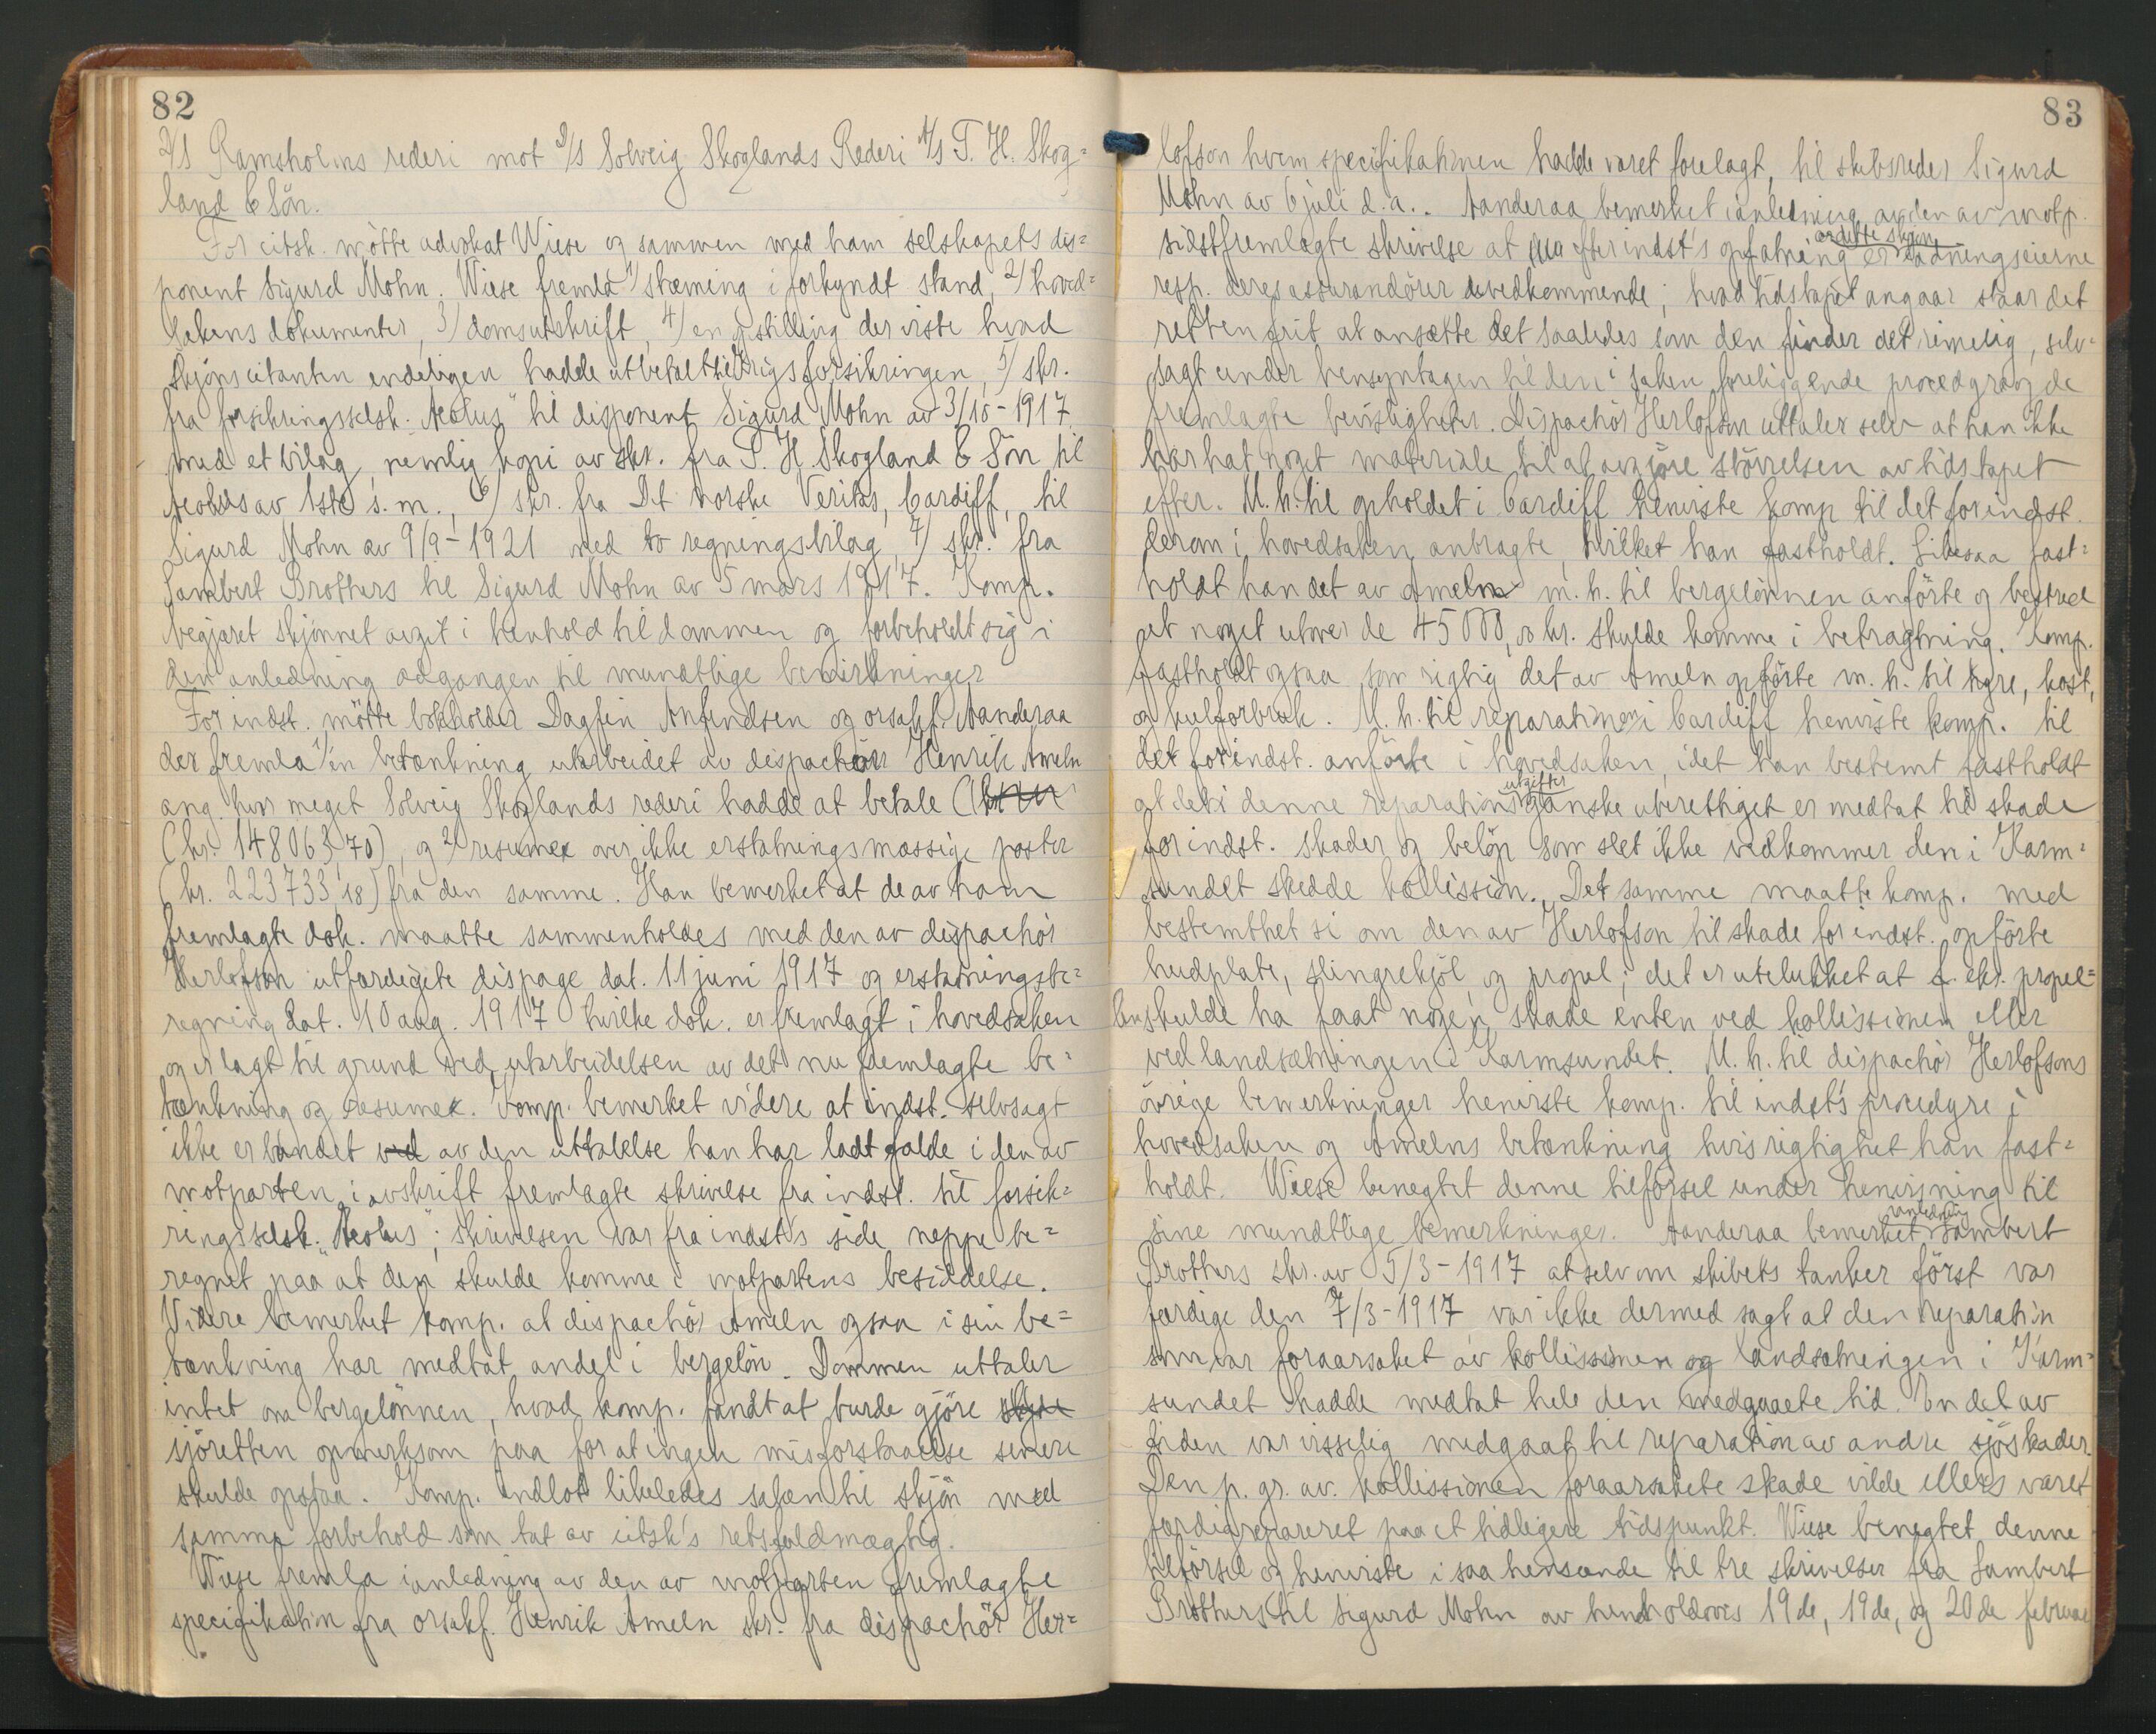 82
D/S Ramsholms rederi mot D/S Solveig Skoglands Rederi A/S T. H. Skog=
land & Sön.
For citsk. mötte advokat Wiese og sammen med ham selskapets dis=
ponent Sigurd Mohn. Wiese fremla 1) stævning i forkyndt stand, 2) hoved=
sakens dokumenter, 3) domsutskrift, 4) en opstilling der viste hvad
skjönscitanten endeligen hadde utbetalt i krigsforsikringen, 5) skr.
fra forsikringsselsk. "Æolus" til disponent Sigurd Mohn av 3/10-1917
med et bilag, nemlig kopi av skr. fra T. H. Skogland & Sön til
Æolus av 1ste s.m., 6) skr. fra Det norske Veritas, Cardiff, til
Sigurd Mohn av 9/9-1921 med to regningsbilag, 7) skr. fra
Lambert Brothers til Sigurd Mohn av 5 mars 1917. Komp.
begjæret skjönnet avgit i henhold til dommen og forbeholdt sig i
den anledning adgangen til mundtlige bemerkninger
For indst. mötte bokholder Dagfin Anfindsen og orsakf. Aanderaa
der fremla 1) en betænkning utarbeidet av dispachör Henrik Ameln
ang. hvor meget Solveig Skoglands rederi hadde at betale
(kr. 148063,70), og 2) resumex over ikke erstatningsmæssige poster
(kr. 223733,18) fra den samme. Han bemerket at de av ham
fremlagte dok. maatte sammenholdes med den av dispachör
Herlofson utfærdigete dispage dat. 11 juni 1917 og erstatningsbe=
regning dat. 10 aug. 1917 hvilke dok. er fremlagt i hovedsaken
og er lagt til grund ved utarbeidelsen av det nu fremlagte be=
tænkning og resumex. Komp. bemerket videre at indst. selvsagt
ikke er bundet ved av den uttalelse han har ladt falde i den av
motparten i avskrift fremlagte skrivelse fra indst. til forsik=
ringsselsk. "Æolus"; skrivelsen var fra indst's side neppe be=
regnet paa at den skulde komme i motpartens besiddelse.
Videre bemerket komp. at dispachör Ameln ogsaa i sin be=
tænkning har medtat andel i bergelön. Dommen uttaler
intet om bergelönnen, hvad komp. fandt at burde gjöre
sjöretten opmerksom paa for at ingen misforstaaelse senere
skulde opstaa. Komp. indlot likeledes saken til skjön med
samme forbehold som tat av citsk's retsfuldmægtig.
Wiese fremla i anledning av den av motparten fremlagte
specifikation fra orsakf. Henrik Ameln skr. fra dispachör Her=
83
lofson hvem specifikationen hadde været forelagt, til skibsreder Sigurd
Mohn av 6 juli d.a.. Aanderaa bemerket i anledning av den av motp.
av dette skjön
sidstfremlagte skrivelse at efter indst's opfatning er ladningseierne
resp. deres assurandörer uvedkommende; hvad tidstapet angaar staar det
retten frit at ansætte det saaledes som den finder det rimelig, selv=
sagt under hensyntagen til den i saken foreliggende procedyre og de
fremlagte bevisligheter. Dispachör Herlofson uttaler selv at han ikke
har hat noget materiale til at avgjöre störrelsen av tidstapet
efter. M.h. til opholdet i Cardiff henviste komp til det for indst.
derom i hovedsaken anbragte, hvilket han fastholdt. Likesaa fast=
holdt han det av Ameln m.h. til bergelönnen anförte og bestred
at noget utover de 45000,00 kr. skulde komme i betragtning. Komp.
fastholdt ogsaa som rigtig det av Ameln opförte m.h. til hyre, kost,
og kulforbruk. M.h. til reparationen i Cardiff henviste komp. til
det for indst. anförte i hovedsaken, idet han bestemt fastholdt
utgifter
at det i denne reparations ganske uberettiget er medtat til skade
for indst. skader og belöp som slet ikke vedkommer den i Karm=
sundet skedde kollission. Det samme maatte komp. med
bestemthet si om den av Herlofson til skade for indst. opförte
hudplate, slingrekjöl og propel; det er utelukket at f. eks. propel=
len skulde ha faat nogen skade enten ved kollissionen eller
ved landsætningen i Karmsundet. M.h. til dispachör Herlofsons
övrige bemerkninger henviste komp. til indst's procedyre i
hovedsaken og Amelns betænkning hvis rigtighet han fast=
holdt. Wiese benegtet denne tilförsel under henvisning til
i anledning
sine mundtlige bemerkninger. Aanderaa bemerket Lambert
Brothers skr. av 5/3-1917 at selv om skibets tanker först var
færdige den 7/3-1917 var ikke dermed sagt at den reparation
som var foraarsaket av kollissionen og landsætningen i Karm=
sundet hadde medtat hele den medgaaete tid. En del av
tiden var visselig medgaat til reparation av andre sjöskader.
Den p.gr.av. kollissionen foraarsakete skade vilde ellers været
færdigrepareret paa et tidligere tidspunkt. Wiese benegtet denne
tilförsel og henviste i saa henseende til tre skrivelser fra Lambert
Brothers til Sigurd Mohn av henholdsvis 19de, 19de, og 20de februar